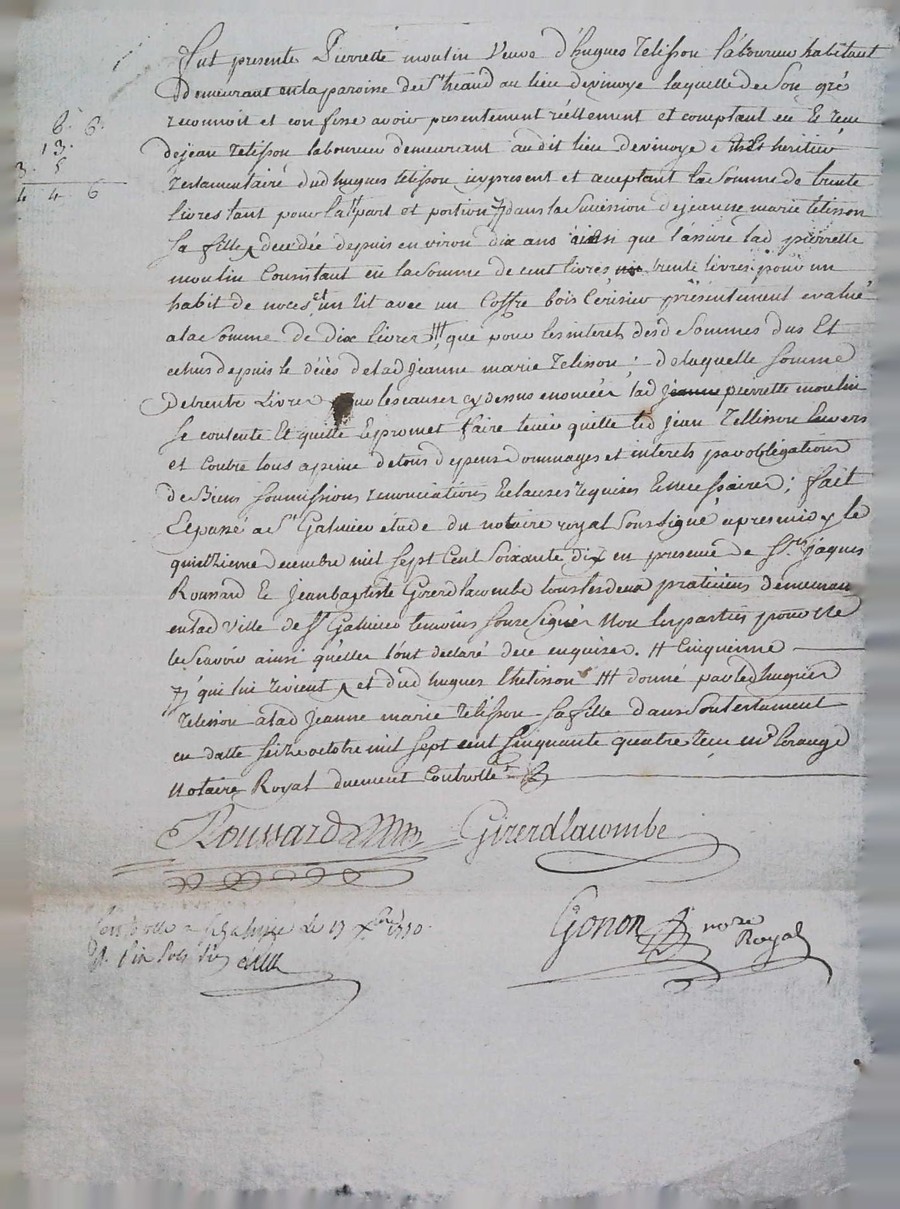 6. 6.
13.
3. 5
4 4 6
Fut presente Pierrette moulin Veuve d'hugues Telisson laboureur habitant
Demeurant en la paroisse de St héand au lieu devimoye laquelle de son gré
reconnoit et confesse avoir presentement réellement et comptant eu et reçu
de jean Telisson laboureur demeurant audit lieu devimoye heritier
testamentaire dud hugues telisson ici present et aceptant la somme de trente
livres tant pour la part et portion dans la sucession de jeanne marie telisson
sa fille decedée depuis environ dix ans ainsi que l'assure lad pierrette
moulin Consistant en la somme de cent livres trente livres pour un
habit de noces et un lit avec un Coffre bois Cérisier présentement evalué
a la somme de dix livres ttt que pour les interets desd sommes dus Et
echus depuis le décès de lad jeanne marie Telisson ; de laquelle somme
de trente Livres les causes cy dessus enoncées lad jeanne pierrette moulin
se contente Et quitte Et promet faire tenir quitte led jean Tellisson Envers
et Contre tous a peine de tous depens dommages et interets par obligation
de Biens soumissions renonciations Et clauses requises Et necessaires ; fait
Et passé a St Galmier etude du notaire royal soussigné apres midy le
quinzieme decembre mil sept cent soixante dix en presence de Srs jaques
Roussard Et jean baptiste Girerd lacombe tous les deux praticiens demeurant
en lad ville de St Galmier temoins soussignés Non les parties pour ne
le scavoir ainsi qu'elles l'ont declaré de ce enquises. tt Cinquieme
qui lui revient et dud hugues thelisson ttt donné par led hugues
Telisson a lad jeanne marie Telisson sa fille dans son testament
en datte seize octobre mil sept cent cinquante quatre reçu
Notaire Royal duement Controllé
Roussard Girerdlacombe
Controlle a St Galmier le 17 Xbre 1770
Gonon nore
Royal